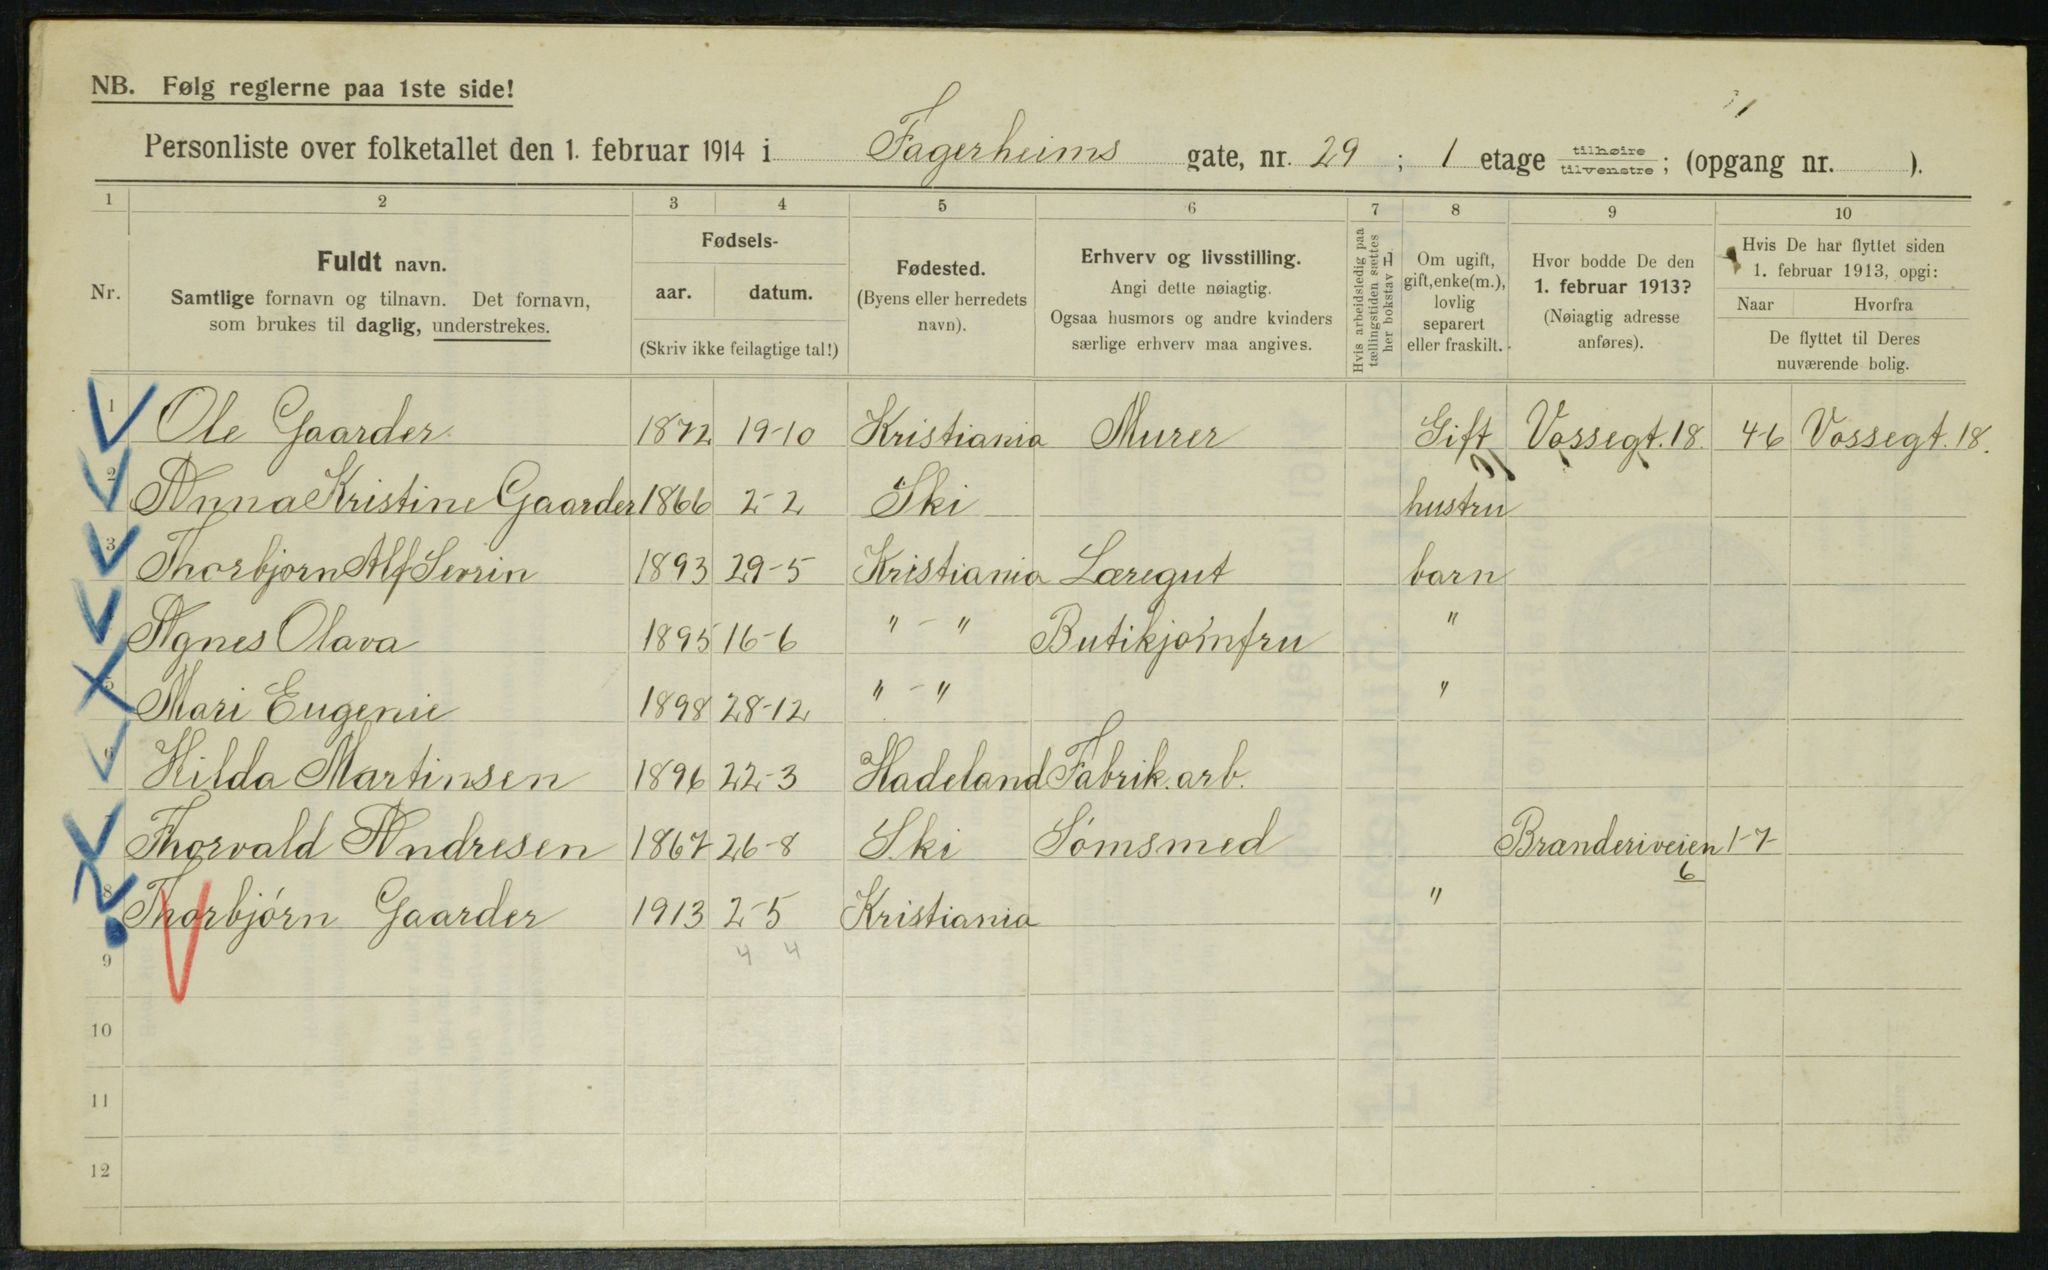 NB. Følg reglerne paa 1ste side!
Personliste over folketallet den 1. februar 1914 i Fagerheims gate, nr. 29 ; 1 etage tilhøire tilvenstre; (opgang nr. ).
1 2 3 4 5 6 7 8 9 10
Nr.
Fuldt navn.
Samtlige fornavn og tilnavn. Det fornavn,
som brukes til daglig, understrekes.
Fødsels-
aar. datum.
(Skriv ikke feilagtige tal!)
Fødested.
(Byens eller herredets
navn).
Erhverv og livsstilling.
Angi dette nøiagtig.
Ogsaa husmors og andre kvinders
særlige erhverv maa angives.
Hvis arbeidsledig paa
tællingstiden sættes
her bokstav L.
Om ugift,
gift, enke(m.),
lovlig
separert
eller fraskilt.
Hvor bodde De den
1. februar 1913?
(Nøiagtig adresse
anføres).
Hvis De har flyttet siden
1. februar 1913, opgi:
Naar Hvorfra
De flyttet til Deres
nuværende bolig.
1 Ole Gaarder 1872 19-10 Kristiania Murer Gift Vossegt. 18 4-6 Vossegt. 18.
2 Anna Kristine Gaarder 1866 2-2 Ski hustru
3 Thorbjorn Alf Sevrin 1893 29-5 Kristiania Læregut barn
Agnes Olava 1895 16-6 " - " Butikjomfru "
5 Mari Eugenie 1898 28-12 " - " "
6 Hilda Martinsen 1896 22-3 Hadeland Fabrik.arb.
7 Thorvald Andresen 1867 26-8 Ski Sömsmed Branderiveien 1-7
6
8 Thorbjórn Gaarder 1913 2-5 Kristiania "
4 4
9
10
11
12